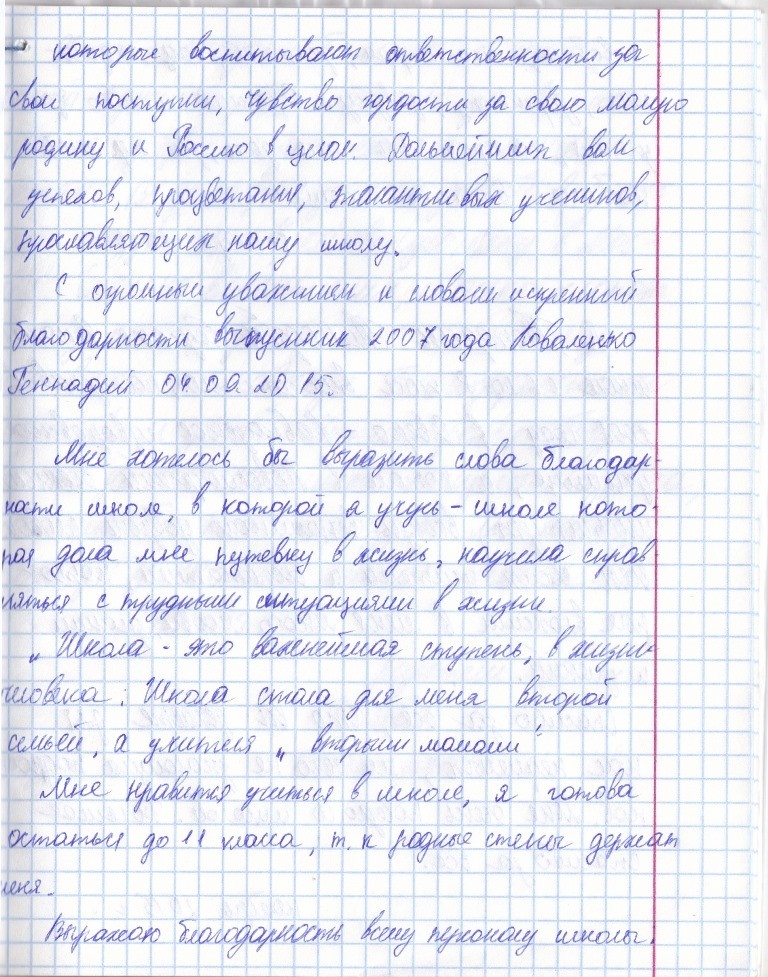 которые воспитывают ответственности за
свои поступки, чувство гордости за свою малую
родину и Россию в целом. Дальнейших вам
успехов, процветания, талантливых учеников,
прославляющих нашу школу.
С огромным уважением и словами искренний
благодарности выпускник 2007 года Коваленко
Геннадий 04 09 2015.
Мне хотелось бы выразить слова благодар-
ности школе, в которой я учусь - школе кото-
рая дала мне путевку в жизнь, научила справ-
ляться с трудными ситуациями в жизни.
„Школа - это важнейшая ступень, в жизни
человека; Школа стала для меня второй
семьёй, а учителя „вторыми мамами"
Мне нравится учиться в школе, я готова
остаться до 11 класса, т. к родные стены держат
меня.
Выражаю благодарность всему школы.